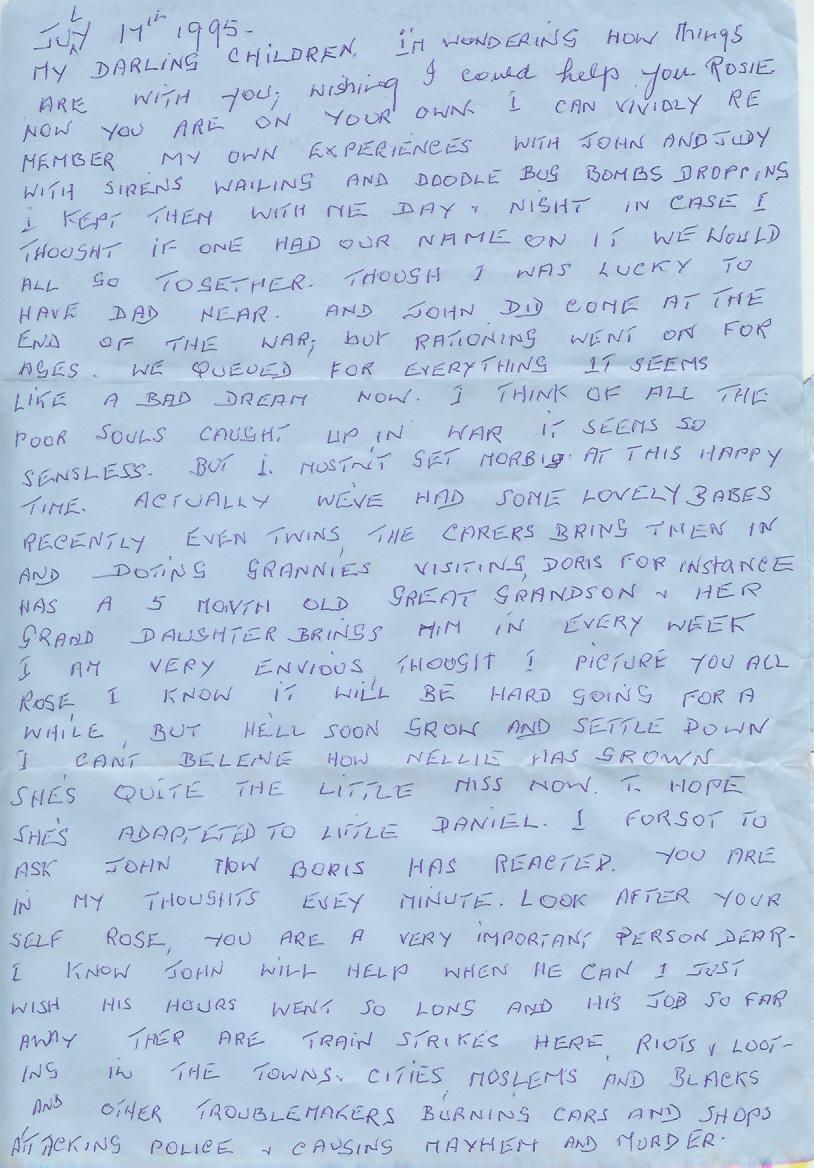 JULY 17th 1995-
MY DARLING CHILDREN, I'M WONDERING HOW Things
ARE WITH YOU; wishing I could help you ROSIE
NOW YOU ARE ON YOUR OWN. I CAN VIVIDLY RE
MEMBER MY OWN EXPERIENCES WITH JOHN AND JUDY
WITH SIRENS WAILING AND DOODLE BUG BOMBS DROPPING
I KEPT THEM WITH ME DAY & NIGHT IN CASE I
THOUGHT IF ONE HAD OUR NAME ON IT WE WOULD
ALL GO TOGETHER. THOUGH I WAS LUCKY TO
HAVE DAD NEAR. AND JOHN DID COME AT THE
END OF THE WAR; but RATIONING WENT ON FOR
AGES. WE QUEUED FOR EVERYTHING IT SEEMS
LIKE A BAD DREAM NOW. I THINK OF ALL THE
POOR SOULS CAUGHT UP IN WAR IT SEEMS SO
SENSLESS. BUT I. MUSTN'T GET MORBID AT THIS HAPPY
TIME. ACTUALLY WE'VE HAD SOME LOVELY BABES
RECENTLY EVEN TWINS, THE CARERS BRING THEM IN
AND DOTING GRANNIES VISITING, DORIS FOR INSTANCE
HAS A 5 MONTH OLD GREAT GRANDSON & HER
GRAND DAUGHTER BRINGS HIM IN EVERY WEEK
I AM VERY ENVIOUS THOUGH I PICTURE YOU ALL
ROSE I KNOW IT WILL BE HARD GOING FOR A
WHILE, BUT HE'LL SOON GROW AND SETTLE DOWN
I CANT BELEIVE HOW NELLIE HAS GROWN
SHE'S QUITE THE LITTLE MISS NOW. I HOPE
SHE'S ADAPTETED TO LITTLE DANIEL. I FORGOT TO
ASK JOHN HOW BORIS HAS REACTED. YOU ARE
IN MY THOUGHTS EVEY MINUTE. LOOK AFTER YOUR
SELF ROSE, YOU ARE A VERY IMPORTANT PERSON DEAR-
I KNOW JOHN WILL HELP WHEN HE CAN I JUST
WISH HIS HOURS WENT SO LONG AND HIS JOB SO FAR
AWAY THER ARE TRAIN STRIKES HERE, RIOTS & LOOT-
ING IN THE TOWNS & CITIES, MOSLEMS AND BLACKS
AND OTHER TROUBLEMAKERS BURNING CARS AND SHOPS
ATTACKING POLICE & CAUSING MAYHEM AND MURDER.